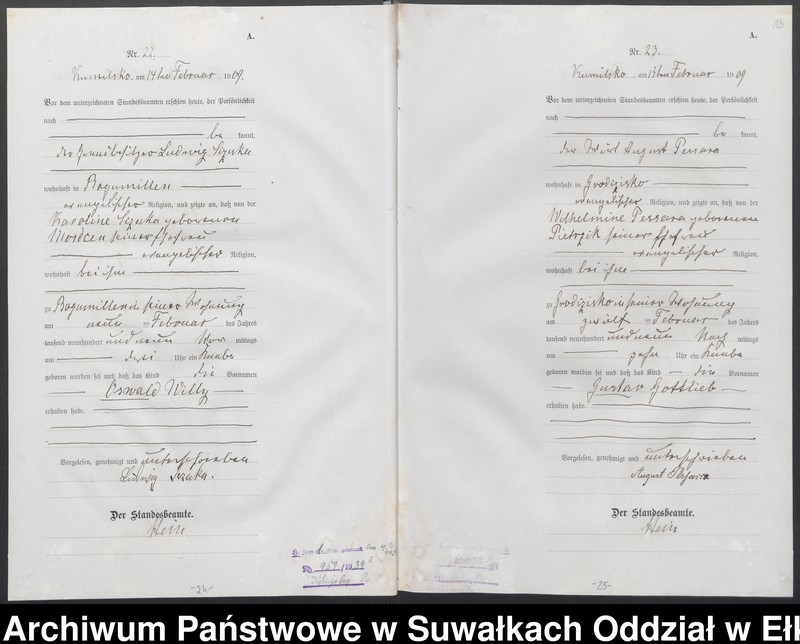 A.
Nr. 22.
Kumilsko, am 14ten Februar 1909.
Vor dem unterzeichneten Standesbeamten erschien heute, der Persönlichkeit
nach
be kannt,
der Grundbesitzer Ludwig
wohnhaft in Bogumillen
evangelischer Religion, und zeigte an, daß von der
Karoline geborenen
seiner Ehefrau
evangelischer Religion,
wohnhaft bei ihm
zu Bogumillen in seiner Wohnung
am neun ten Februar des Jahres
tausend neunhundert und neun Vor mittags
um drei Uhr ein Knabe
geboren worden sei und daß das Kind die Vornamen
Oswald Willy
erhalten habe.
Vorgelesen, genehmigt und unterschrieben
Ludwig
Der Standesbeamte.
Hein
-24-
13
A.
Nr. 23.
Kumilsko, am Februar 1909
Vor dem unterzeichneten Standesbeamten erschien heute, der Persönlichkeit
nach
be kannt,
der Wirt August Pessara
wohnhaft in Grodzisko
evangelischer Religion, und zeigte an, daß von der
Wilhelmine Pessara geborenen
Pietrzik seiner Ehefrau
evangelischer Religion,
wohnhaft bei ihm
zu Grodzisko in seiner Wohnung
am zwölf ten Februar des Jahres
tausend neunhundert und neun Nach mittags
um zehn Uhr ein Knabe
geboren worden sei und daß das Kind die Vornamen
Gustav Gottlieb
erhalten habe.
Vorgelesen, genehmigt und unterschrieben
August Pessara
Der Standesbeamte.
Hein
-25-
Archiwum Państwowe w Suwałkach Oddział w Eł